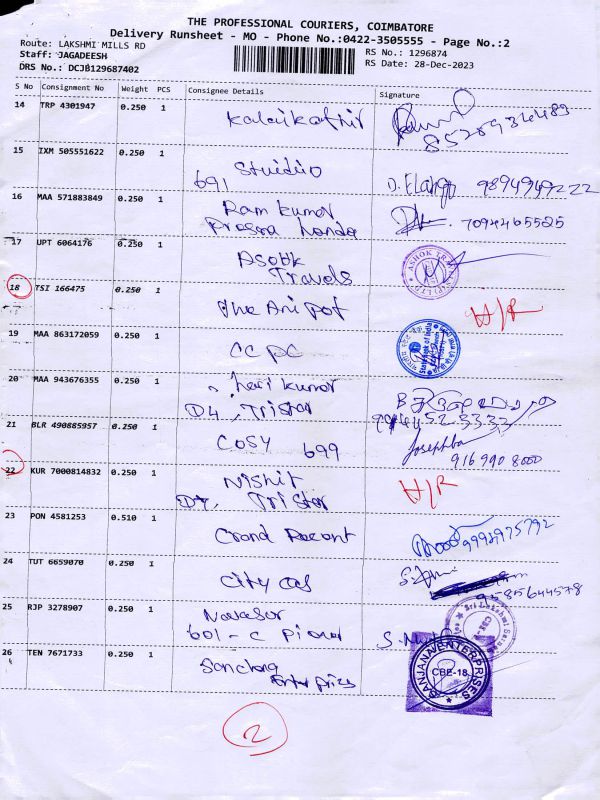 THE PROFESSIONAL COURIERS, COIMBATORE
Delivery Runsheet - MO - Phone No.:0422-3505555 - Page No.:2
Route: LAKSHMI MILLS RD
RS No.: 1296874
Staff: JAGADEESH
RS Date: 28-Dec-2023
DRS No.: DCJB129687402
S No Consignment No Weight PCS Consignee Details Signature
14 TRP 4301947 0.250 1
Kalaikathir
8528934489
15 IXM 505551622 0.250 1
691 Studio
D. Elango 9894949222
16 MAA 571883849 0.250 1
Ram kumar
Prasana honda
7094465525
17 UPT 6064176 0.250 1
Asobk
Travels
ASHOK TRAVELS
18 TSI 166475 0.250 1
the Ani pot
H/R
19 MAA 863172059 0.250 1
CCPC
State Bank of India
20 MAA 943676355 0.250 1
hari kumar
D4, Tristar
9944523332
21 BLR 490885957 0.250 1
COSY 699
Josephba
916 990 8000
22 KUR 7000814832 0.250 1
Nishit
D7, Tristar
H/R
23 PON 4581253 0.510 1
Grand Recent
9993975792
24 TUT 6659070 0.250 1
City cas
9585644578
25 RJP 3278907 0.250 1
Navasar
601 - C Pioneer
Sri Lakshmi
26 TEN 7671733 0.250 1
Sanclang
Enterprizes
SANJANA ENTERPRISES
CBE-18
2